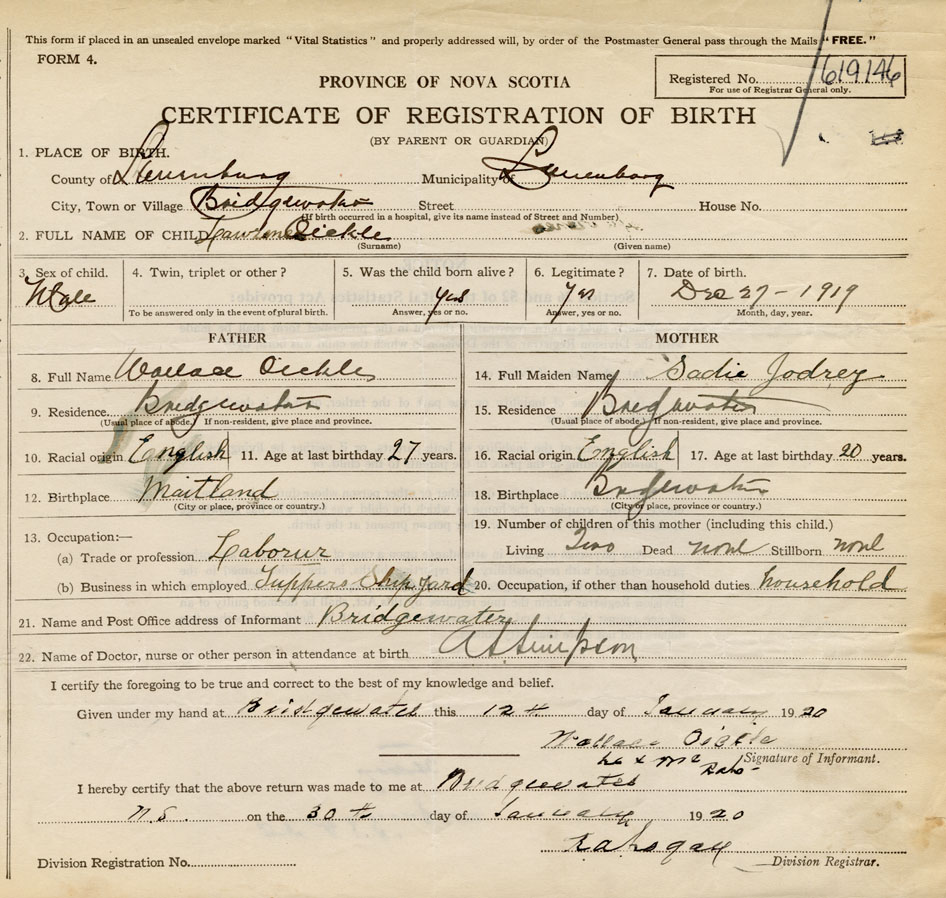 This form if placed in an unsealed envelope marked "Vital Statistics" and properly addressed will, by order of the Postmaster General pass through the Mails "FREE."
FORM 4.
PROVINCE OF NOVA SCOTIA
Registered No. 619146
For use of Registrar General only.
CERTIFICATE OF REGISTRATION OF BIRTH
(BY PARENT OR GUARDIAN)
1. PLACE OF BIRTH.
County of Lunenburg Municipality of Lunenburg
City, Town or Village Bridgewater Street House No.
(If birth occurred in a hospital, give its name instead of Street and Number)
2. FULL NAME OF CHILD Oickle
(Surname) (Given name)
3. Sex of child. 4. Twin, triplet or other? 5. Was the child born alive? 6. Legitimate? 7. Date of birth.
Male yes yes Dec 27 - 1919
To be answered only in the event of plural birth. Answer, yes or no. Answer, yes or no. Month, day, year.
FATHER MOTHER
8. Full Name Wallace Oickle 14. Full Maiden Name Sadie Jodrey
9. Residence Bridgewater 15. Residence Bridgewater
(Usual place of abode.) If non-resident, give place and province. (Usual place of abode.) If non-resident, give place and province.
10. Racial origin English 11. Age at last birthday 27 years. 16. Racial origin English 17. Age at last birthday 20 years.
12. Birthplace Maitland 18. Birthplace Bridgewater
(City or place, province or country.) (City or place, province or country.)
13. Occupation:— 19. Number of children of this mother (including this child.)
(a) Trade or profession Laborur Living Two Dead none Stillborn none
(b) Business in which employed Tuppers Ship yard 20. Occupation, if other than household duties household
21. Name and Post Office address of Informant Bridgewater
22. Name of Doctor, nurse or other person in attendance at birth
I certify the foregoing to be true and correct to the best of my knowledge and belief.
Given under my hand at Bridgewater this 12th day of January 1920
Wallace Oickle
Signature of Informant.
I hereby certify that the above return was made to me at Bridgewater
N.S. on the 30th day of January 1920
Division Registration No. Division Registrar.